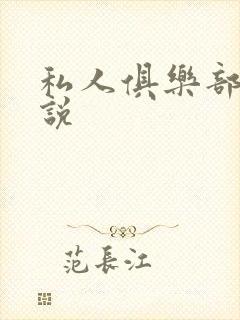 私人俱樂部
說
范長江